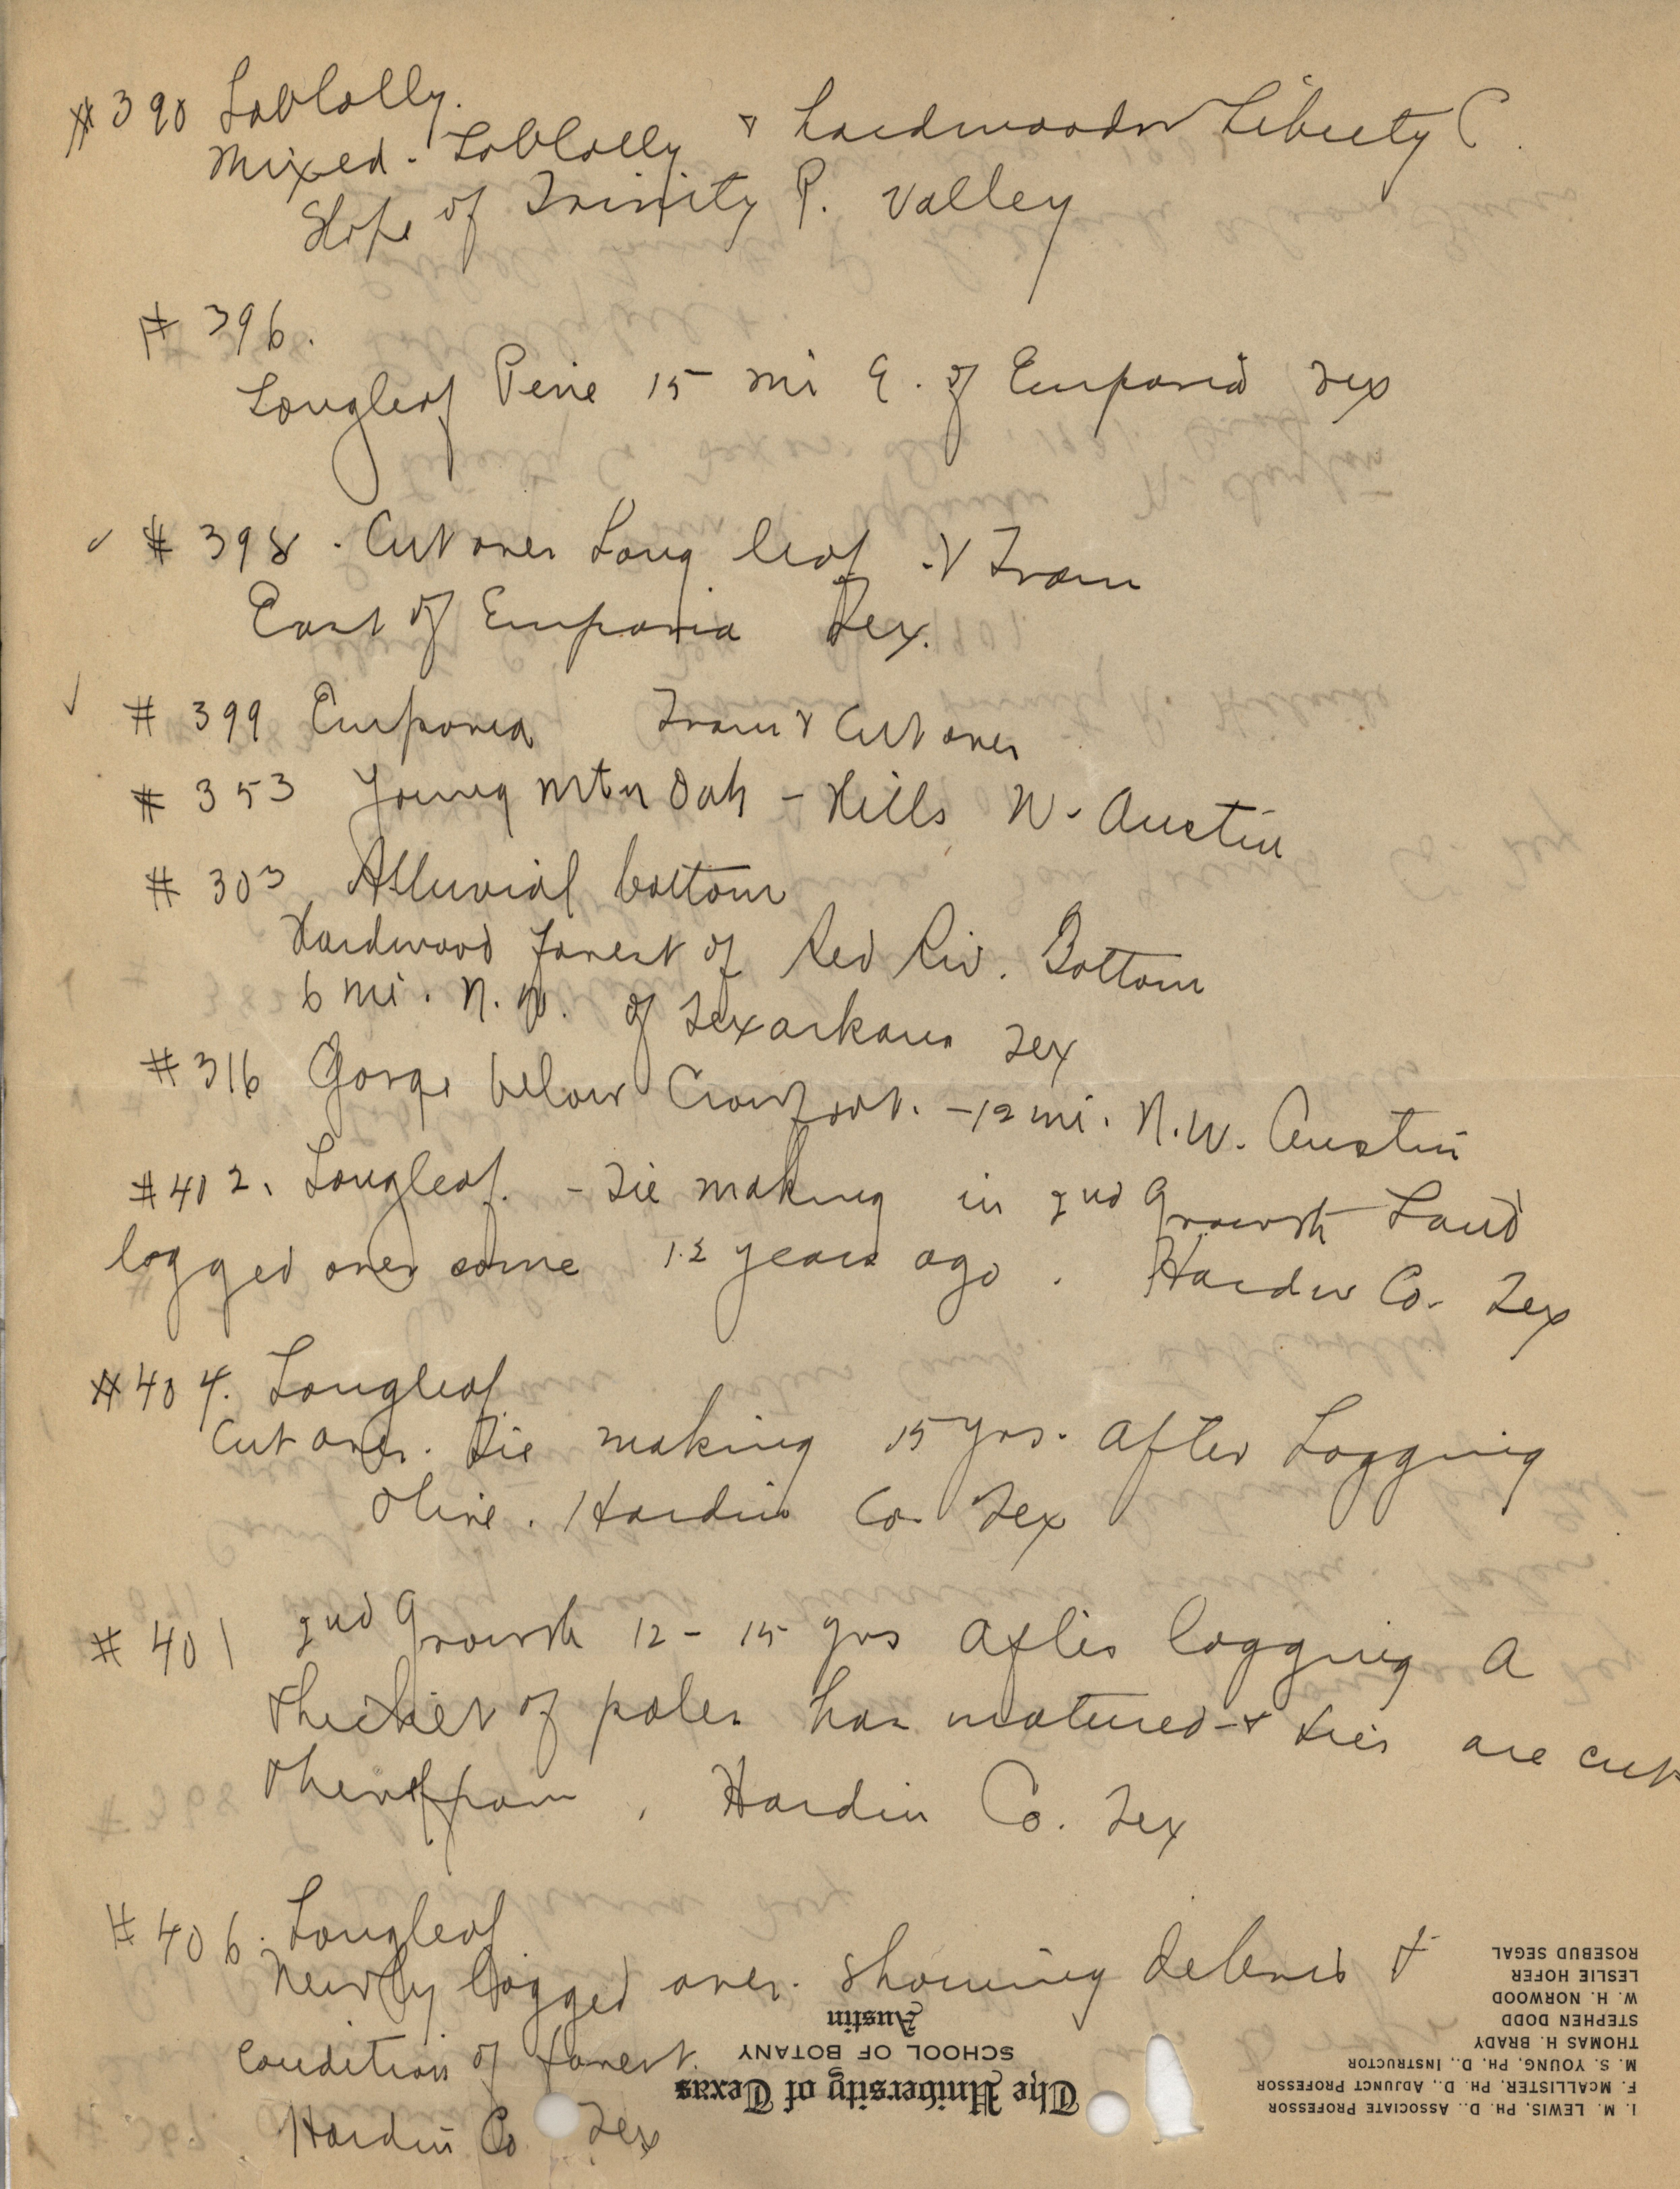 #390 Loblolly.
Mixed - Loblolly & hardwoods Liberty C.
Slope of Trinity R. Valley
# 396.
Longleaf Pine 15 mi E. of Emporia Tex
# 398 - Cut over Long leaf & Tram
East of Emporia Tex.
# 399 Emporia Tram & Cut over
# 353 Young Mtn Oak - Hills W. Austin
# 303 Alluvial bottom
Hardwood forest of Red Riv. Bottom
6 mi. N.W. of Texarkana Tex
#316 Gorge below Crowfoot. - 12 mi. N.W. Austin
#402. Longleaf. - Tie making in 2nd Growth Land
logged over some 12 years ago. Hardin Co. Tex
#404. Longleaf
Cut over. Tie making 15 yrs. after Logging
Olive. Hardin Co. Tex
# 401 2nd Growth 12 - 15 yrs after logging A
thicket of poles has matured - & ties are cut
therefrom, Hardin Co. Tex
# 406. Longleaf
Newly logged over. Showing debris &
condition of forest.
Hardin Co Tex
The University of Texas
SCHOOL OF BOTANY
Austin
I. M. LEWIS, PH. D., ASSOCIATE PROFESSOR
F. MCALLISTER, PH. D., ADJUNCT PROFESSOR
M. S. YOUNG, PH. D., INSTRUCTOR
THOMAS H. BRADY
STEPHEN DODD
W. H. NORWOOD
LESLIE HOFER
ROSEBUD SEGAL